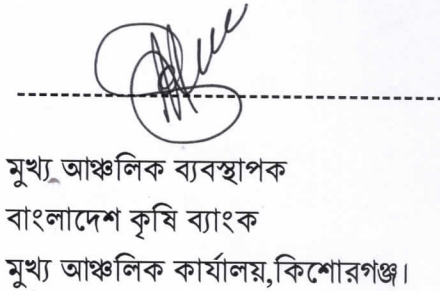 মুখ্য আঞ্চলিক ব্যবস্থাপক
বাংলাদেশ কৃষি ব্যাংক
মুখ্য আঞ্চলিক কার্যালয়,কিশোরগঞ্জ।